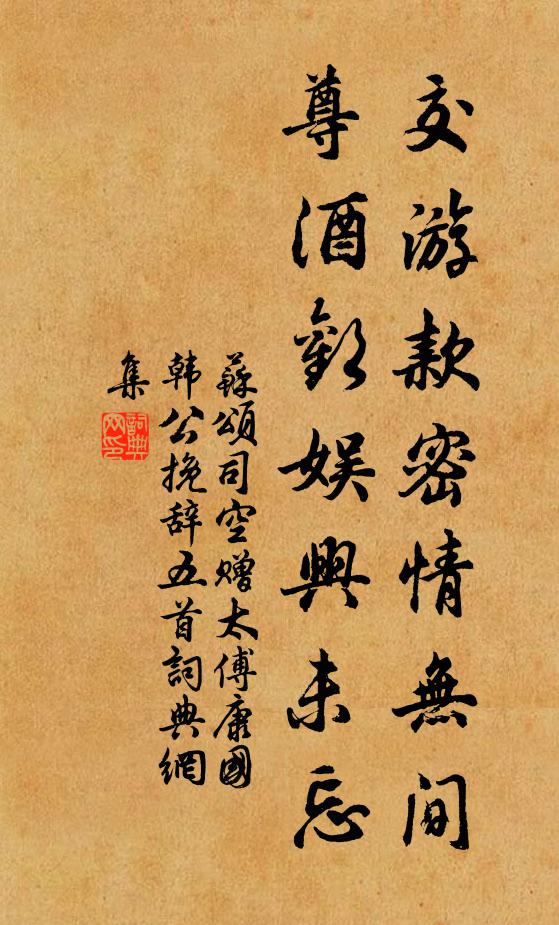 交游款密情無间
尊酒歡娱興未忘
蘇頌司空赠太傅康國
韩公挽辞五首詞典網
集
詞典网印